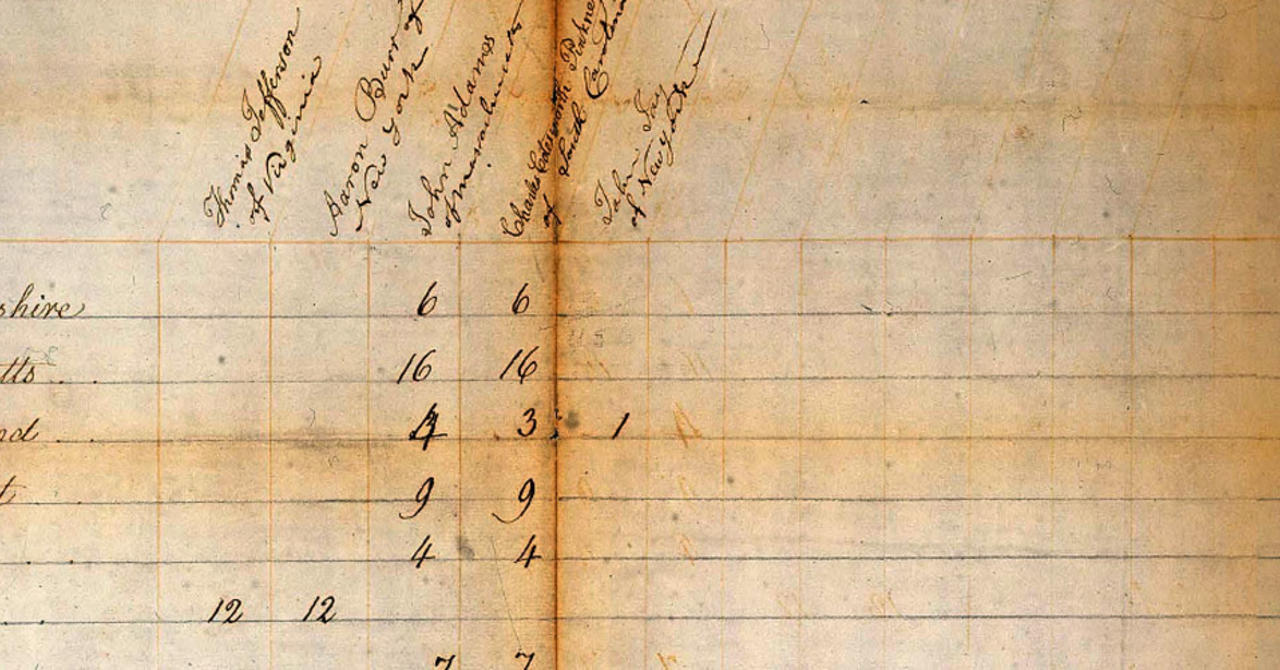 Thomas Jefferson
of Virginia
Aaron Burr of
New York
John Adams
of Massachusetts
Charles Cotesworth Pinkne
of South Carolina
John Jay
of New York
shire 6 6
tts 16 16
nd 4 3 1
t 9 9
4 4
12 12
7 7